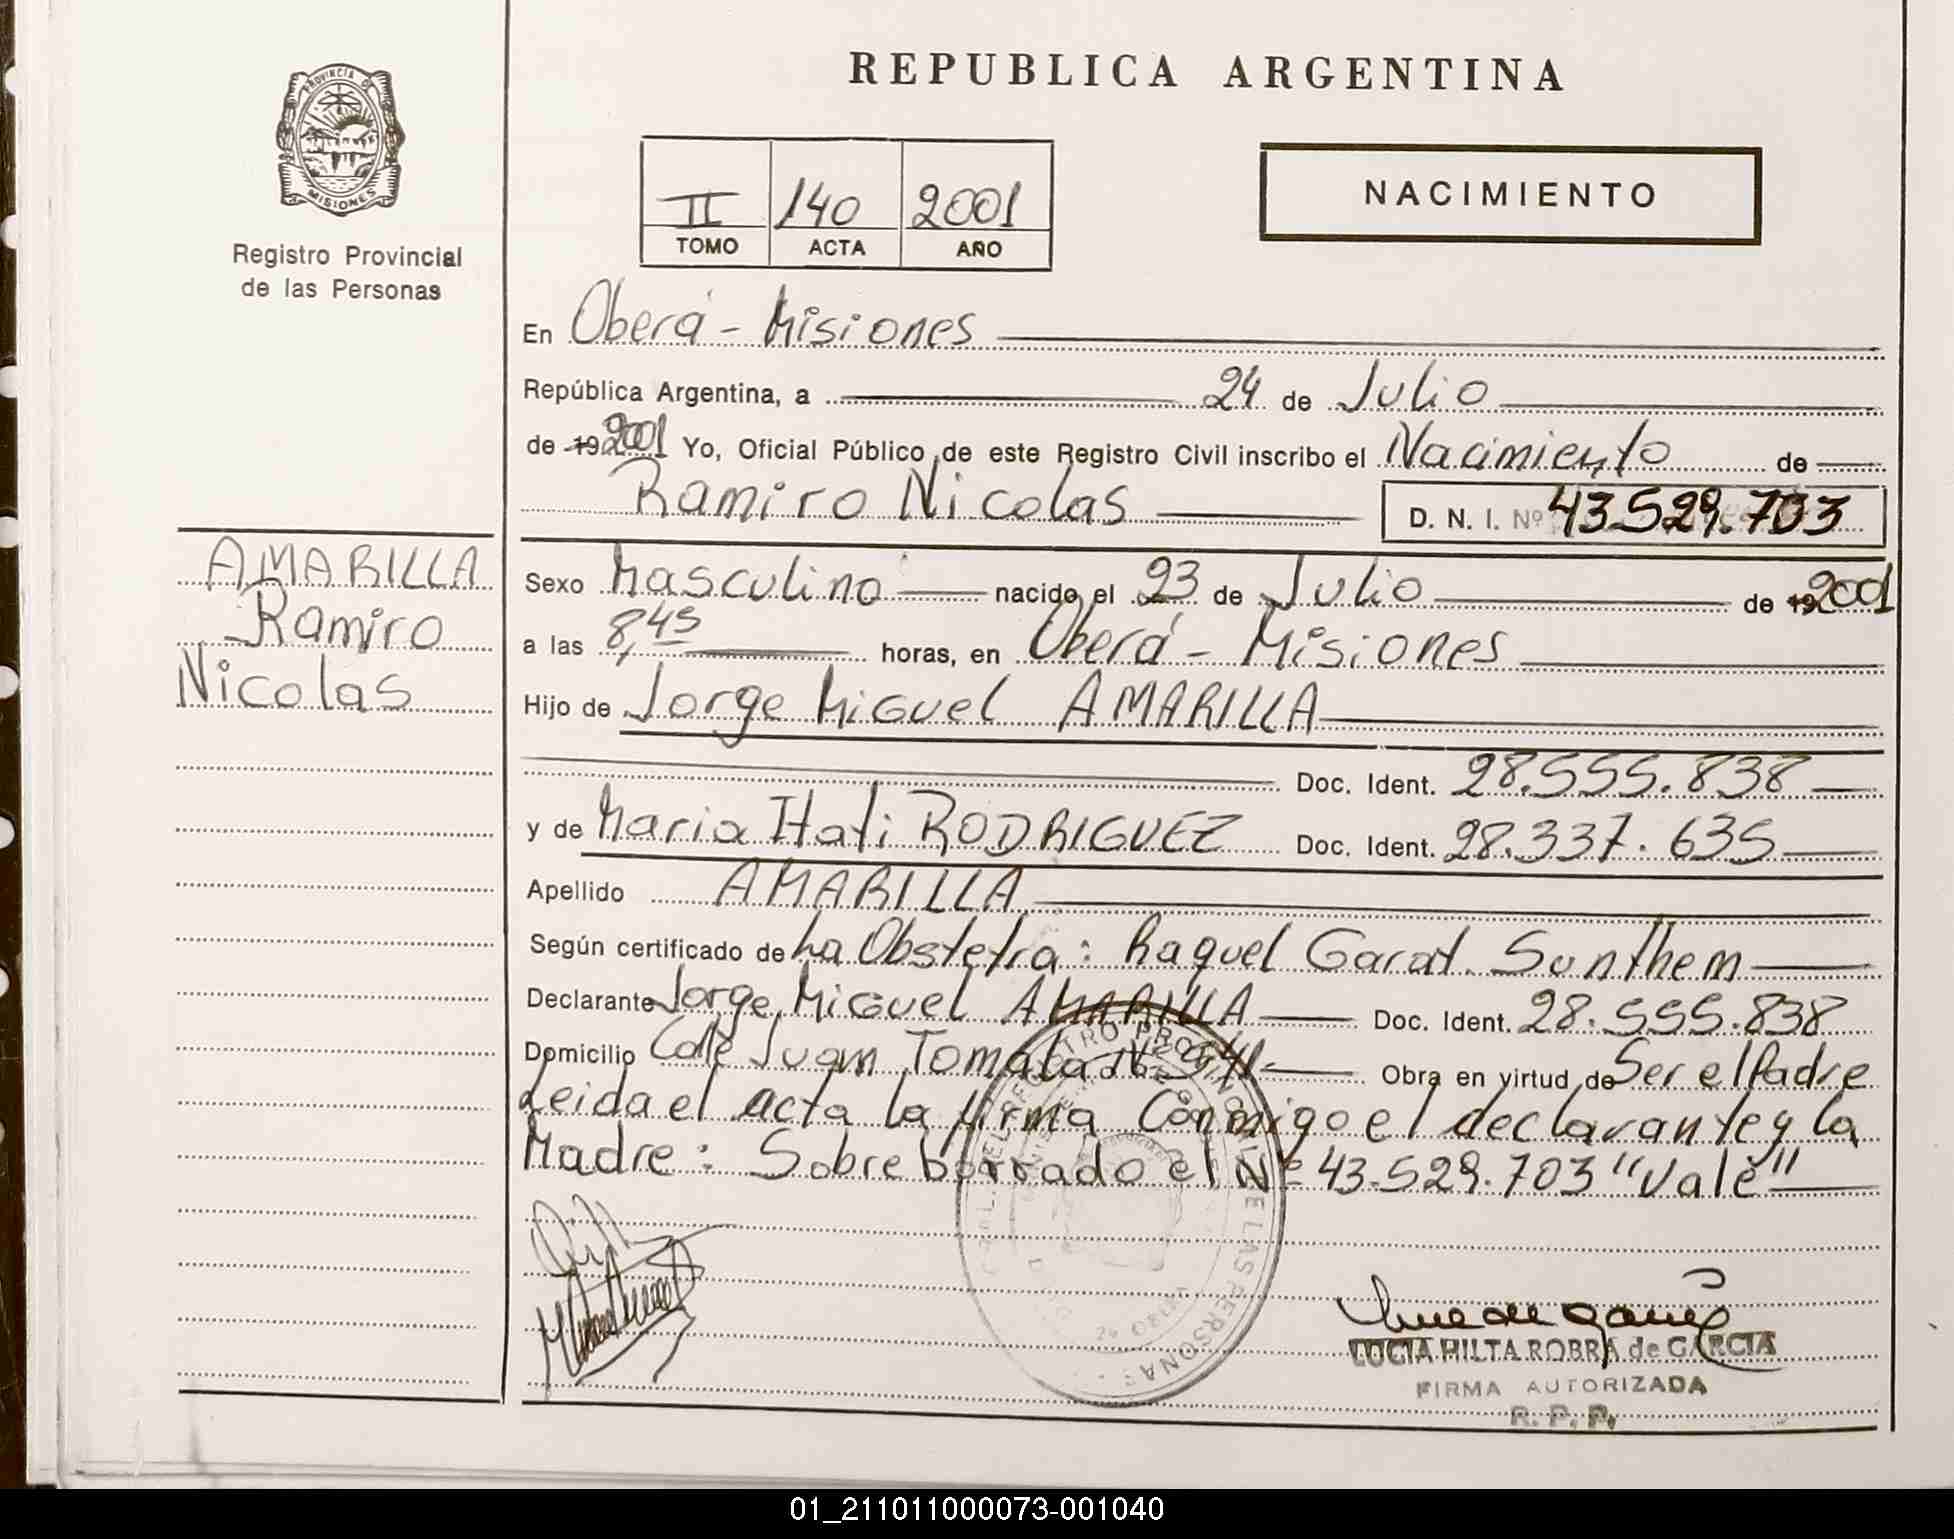 REPUBLICA ARGENTINA
PROVINCIA DE
MISIONES
Registro Provincial
de las Personas
II 140 2001
TOMO ACTA AÑO
NACIMIENTO
En Oberá - Misiones
República Argentina, a 24 de Julio
de 19 2001 Yo, Oficial Público de este Registro Civil inscribo el Nacimiento de
Ramiro Nicolas
D. N. I. Nº 43.529.703
AMARILLA
Ramiro
Nicolas
Sexo Masculino nacido el 23 de Julio de 19 2001
a las 8,45 horas, en Oberá - Misiones
Hijo de Jorge Miguel AMARILLA
Doc. Ident. 28.555.838
y de Maria Itati RODRIGUEZ Doc. Ident. 28.337.635
Apellido AMARILLA
Según certificado de La Obstetra: Raquel Garat. Sunthem
Declarante Jorge Miguel AMARILLA Doc. Ident. 28.555.838
Domicilio Calle Juan Tomala Nº 541 Obra en virtud de Ser el Padre
Leida el acta la firma Conmigo el declarante y la
Madre: Sobreborrado el Nº 43.529.703 "Vale"
LUCIA HILTA ROBRA de GARCIA
FIRMA AUTORIZADA
R. P. P.
01_211011000073-001040